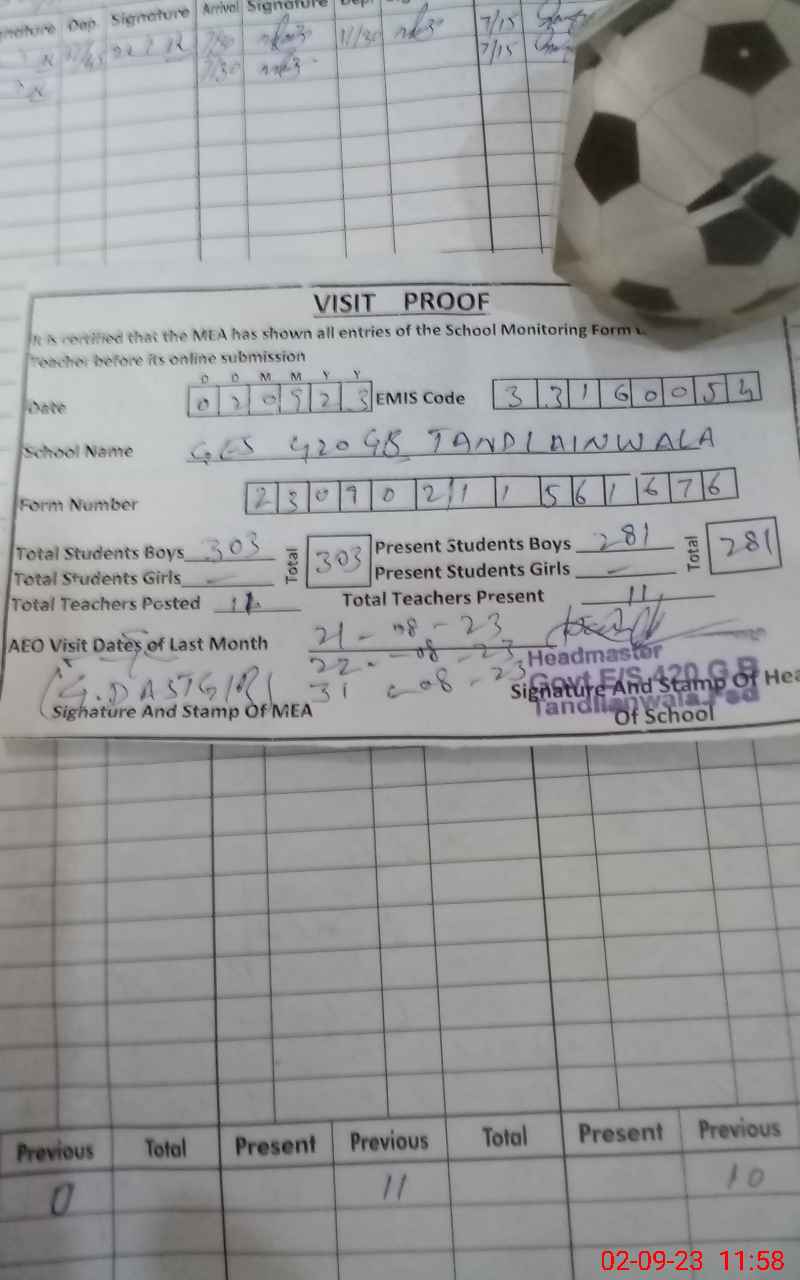 Dep. Signature Arrival Signature
7/30 11/30 7/15
7/30 7/15
VISIT PROOF
It is certified that the MEA has shown all entries of the School Monitoring Form
Teacher before its online submission
D D M M Y Y
Date 0 2 0 9 2 3 EMIS Code 3 3 1 6 0 0 5 4
School Name GES 420 GB TANDLAINWALA
Form Number 2 3 0 9 0 2 1 1 1 5 6 1 6 7 6
Total Students Boys 303 Total 303 Present Students Boys 281 Total 281
Total Students Girls - Present Students Girls -
Total Teachers Posted 11 Total Teachers Present 11
AEO Visit Dates of Last Month 21-08-23
22-08-23
31-08-23
(G.DASTGIR)
Headmaster
Govt E/S 420 G.B
Tandlianwala Fsd
Signature And Stamp Of MEA Signature And Stamp Of Hea
Of School
Previous Total Present Previous Total Present Previous
0 11 10
02-09-23 11:58